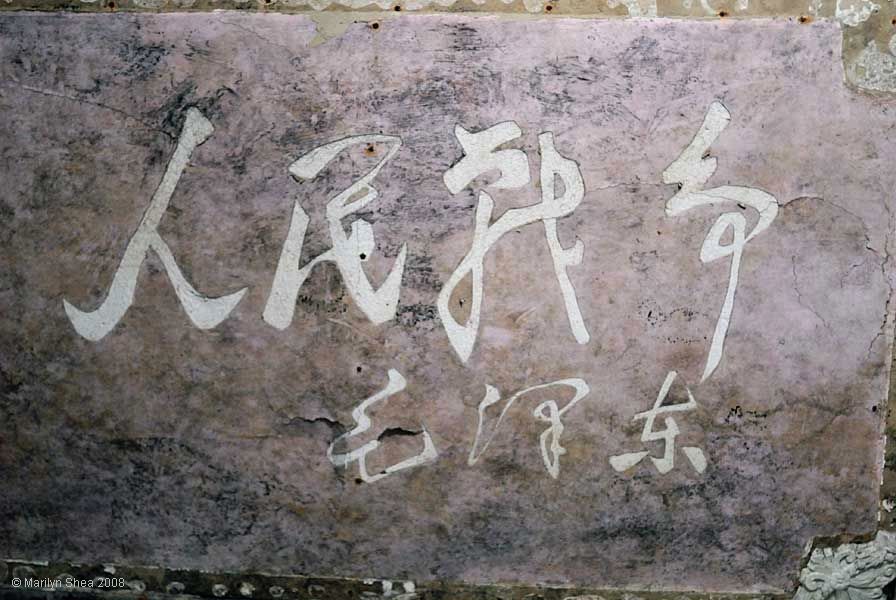 人民战争
毛泽东
© Marilyn Shea 2008